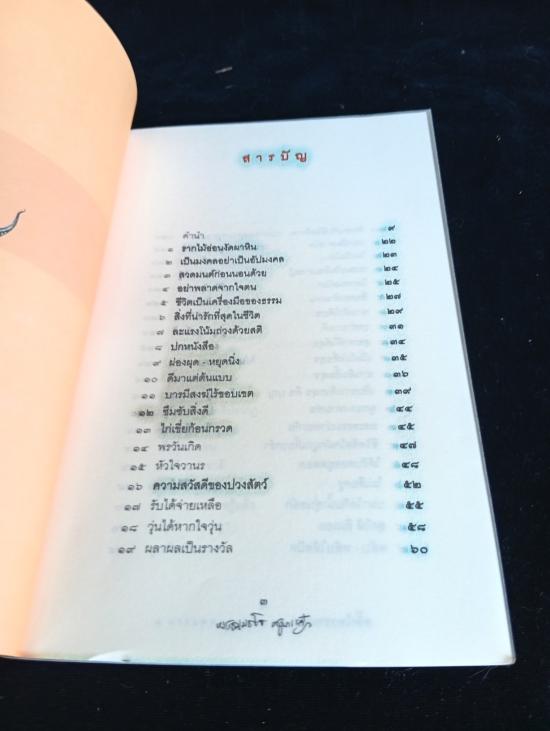 สารบัญ
คำนำ ๙
๑ รากไม้อ่อนงัดผาหิน ๒๒
๒ เป็นมงคลอย่าเป็นอัปมงคล ๒๓
๓ สวดมนต์ก่อนนอนด้วย ๒๔
๔ อย่าพลาดจากใจตน ๒๕
๕ ชีวิตเป็นเครื่องมือของธรรม ๒๗
๖ สิ่งที่น่ารักที่สุดในชีวิต ๒๙
๗ ละแรงโน้มถ่วงด้วยสติ ๓๑
๘ ปกหนังสือ ๓๔
๙ ผ่องผุด - หยุดนิ่ง ๓๕
๑๐ ดีมาแต่ต้นแบบ ๓๖
๑๑ บารมีสงฆ์ไร้ขอบเขต ๓๙
๑๒ ซึมซับสิ่งดี ๔๔
๑๓ ไก่เขี่ยก้อนกรวด ๔๕
๑๔ พรวันเกิด ๔๗
๑๕ หัวใจวานร ๔๘
๑๖ ความสวัสดีของปวงสัตว์ ๕๒
๑๗ รับได้จ่ายเหลือ ๕๕
๑๘ วุ่นได้หากใจวุ่น ๕๘
๑๙ ผลาผลเป็นรางวัล ๖๐
๓